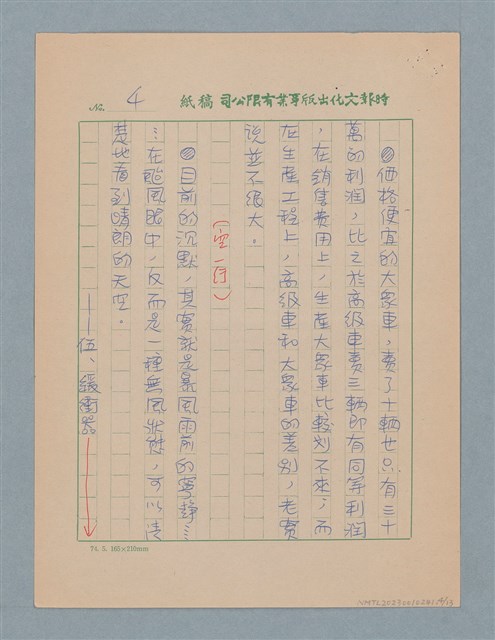 時報文化出版事業有限公司 稿紙
No. 4
◎價格便宜的大眾車，賣了十輛也只有三十
萬的利潤，比之於高級車賣三輛即有同等利潤
，在銷售費用上，生產大眾車比較划不來；而
在生產工程上，高級車和大眾車的差別，老實
說並不很大。
（空一行）
◎目前的沉默，其實就是暴風雨前的寧靜…
…在颱風眼中，反而是一種無風狀態，可以清
楚地看到晴朗的天空。
——伍、緩衝器
74. 5. 165×210mm